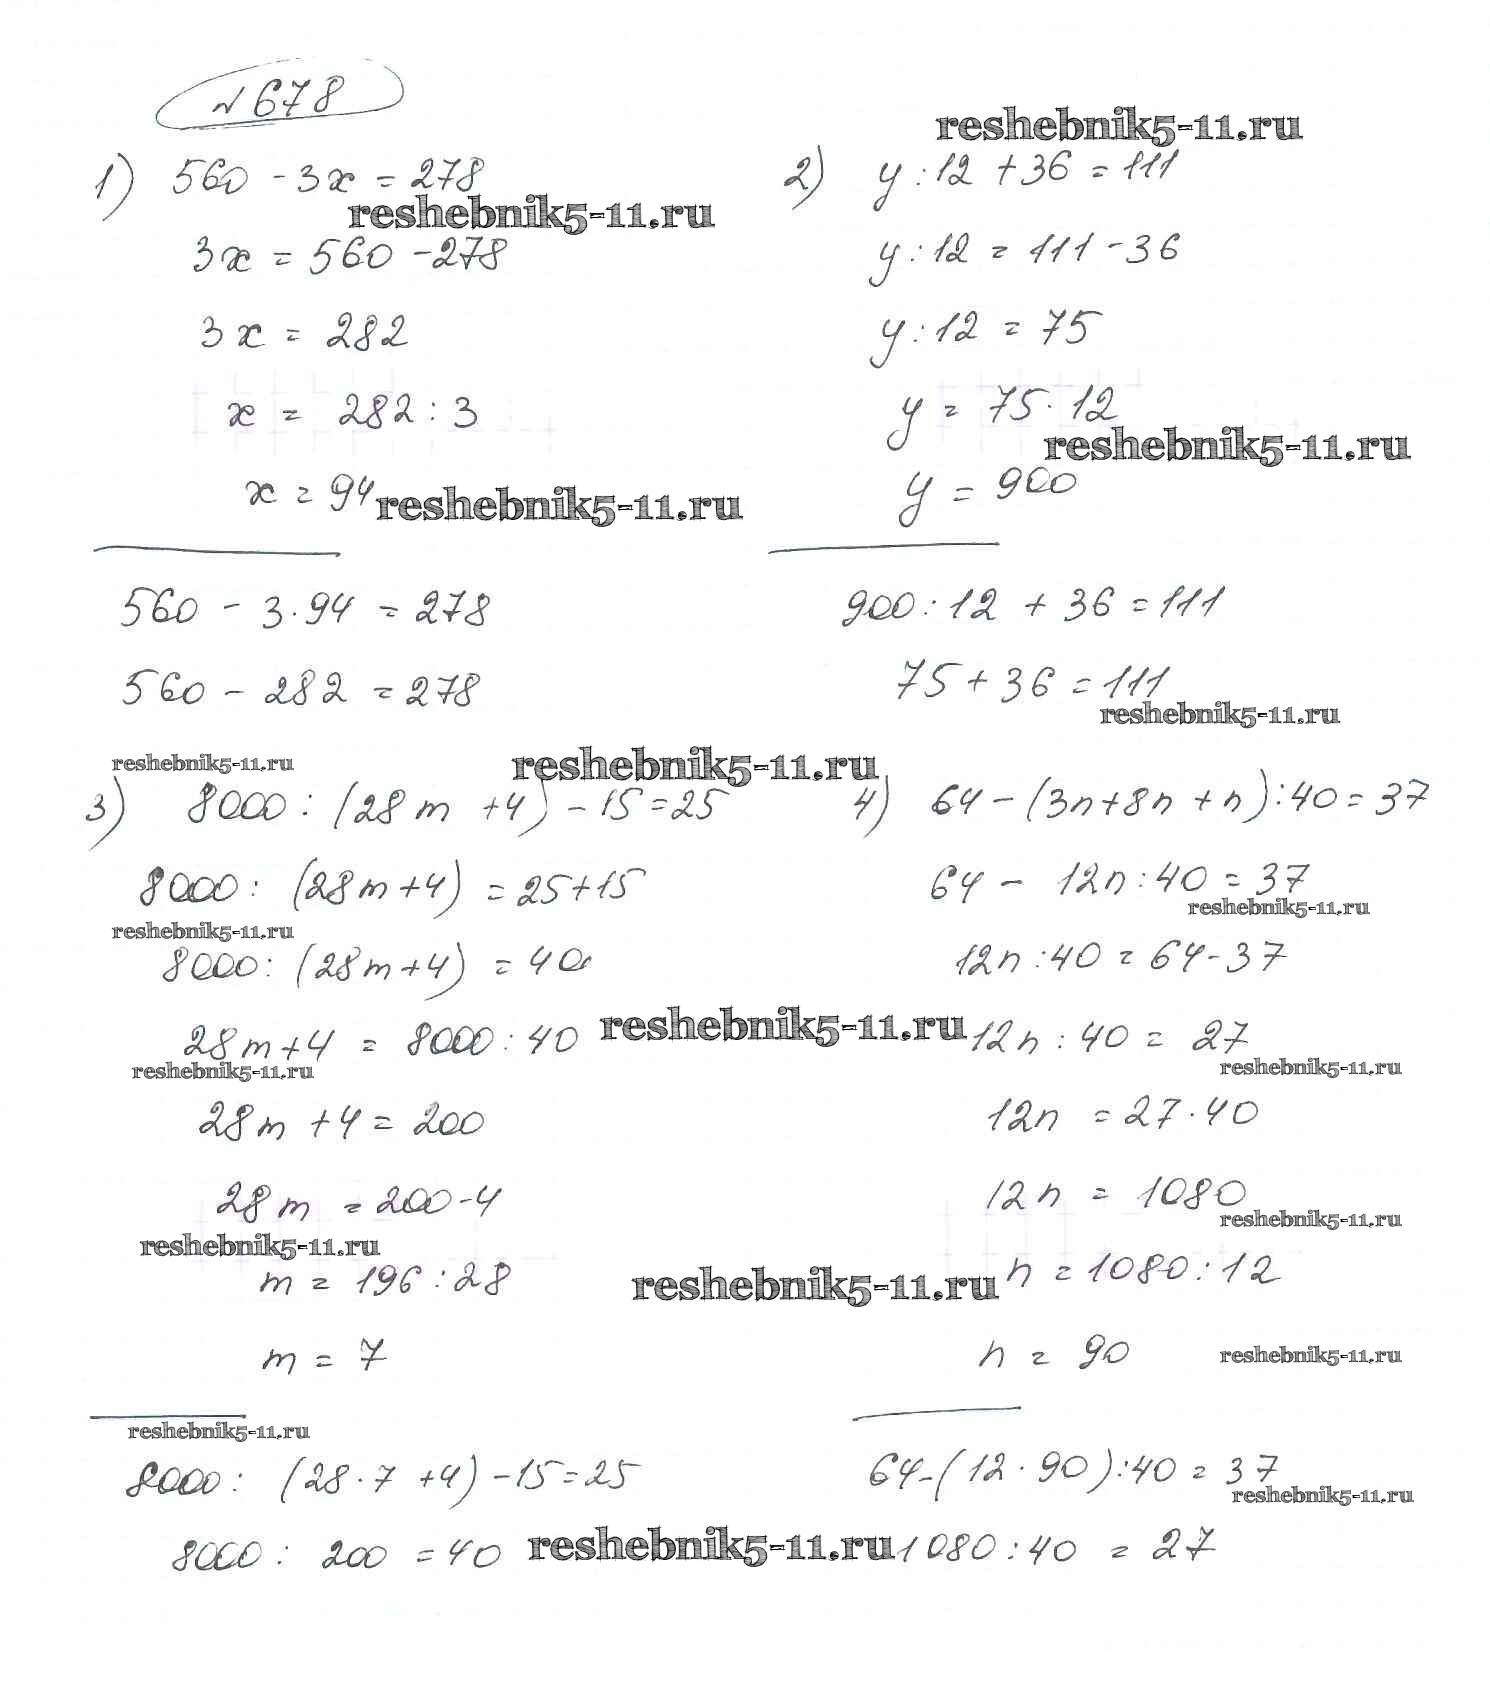 №678
reshebnik5-11.ru
1) 560 - 3x = 278
reshebnik5-11.ru
3x = 560 - 278
3x = 282
x = 282 : 3
x = 94
reshebnik5-11.ru
560 - 3 · 94 = 278
560 - 282 = 278
2) y : 12 + 36 = 111
y : 12 = 111 - 36
y : 12 = 75
y = 75 · 12
reshebnik5-11.ru
y = 900
900 : 12 + 36 = 111
75 + 36 = 111
reshebnik5-11.ru
reshebnik5-11.ru
reshebnik5-11.ru
3) 8000 : (28m + 4) - 15 = 25
8000 : (28m + 4) = 25 + 15
reshebnik5-11.ru
8000 : (28m + 4) = 40
28m + 4 = 8000 : 40
reshebnik5-11.ru
reshebnik5-11.ru
28m + 4 = 200
28m = 200 - 4
reshebnik5-11.ru
m = 196 : 28
reshebnik5-11.ru
m = 7
reshebnik5-11.ru
8000 : (28 · 7 + 4) - 15 = 25
8000 : 200 = 40
reshebnik5-11.ru
4) 64 - (3n + 8n + n) : 40 = 37
64 - 12n : 40 = 37
reshebnik5-11.ru
12n : 40 = 64 - 37
12n : 40 = 27
reshebnik5-11.ru
12n = 27 · 40
12n = 1080
reshebnik5-11.ru
n = 1080 : 12
n = 90
reshebnik5-11.ru
64 - (12 · 90) : 40 = 37
reshebnik5-11.ru
1080 : 40 = 27